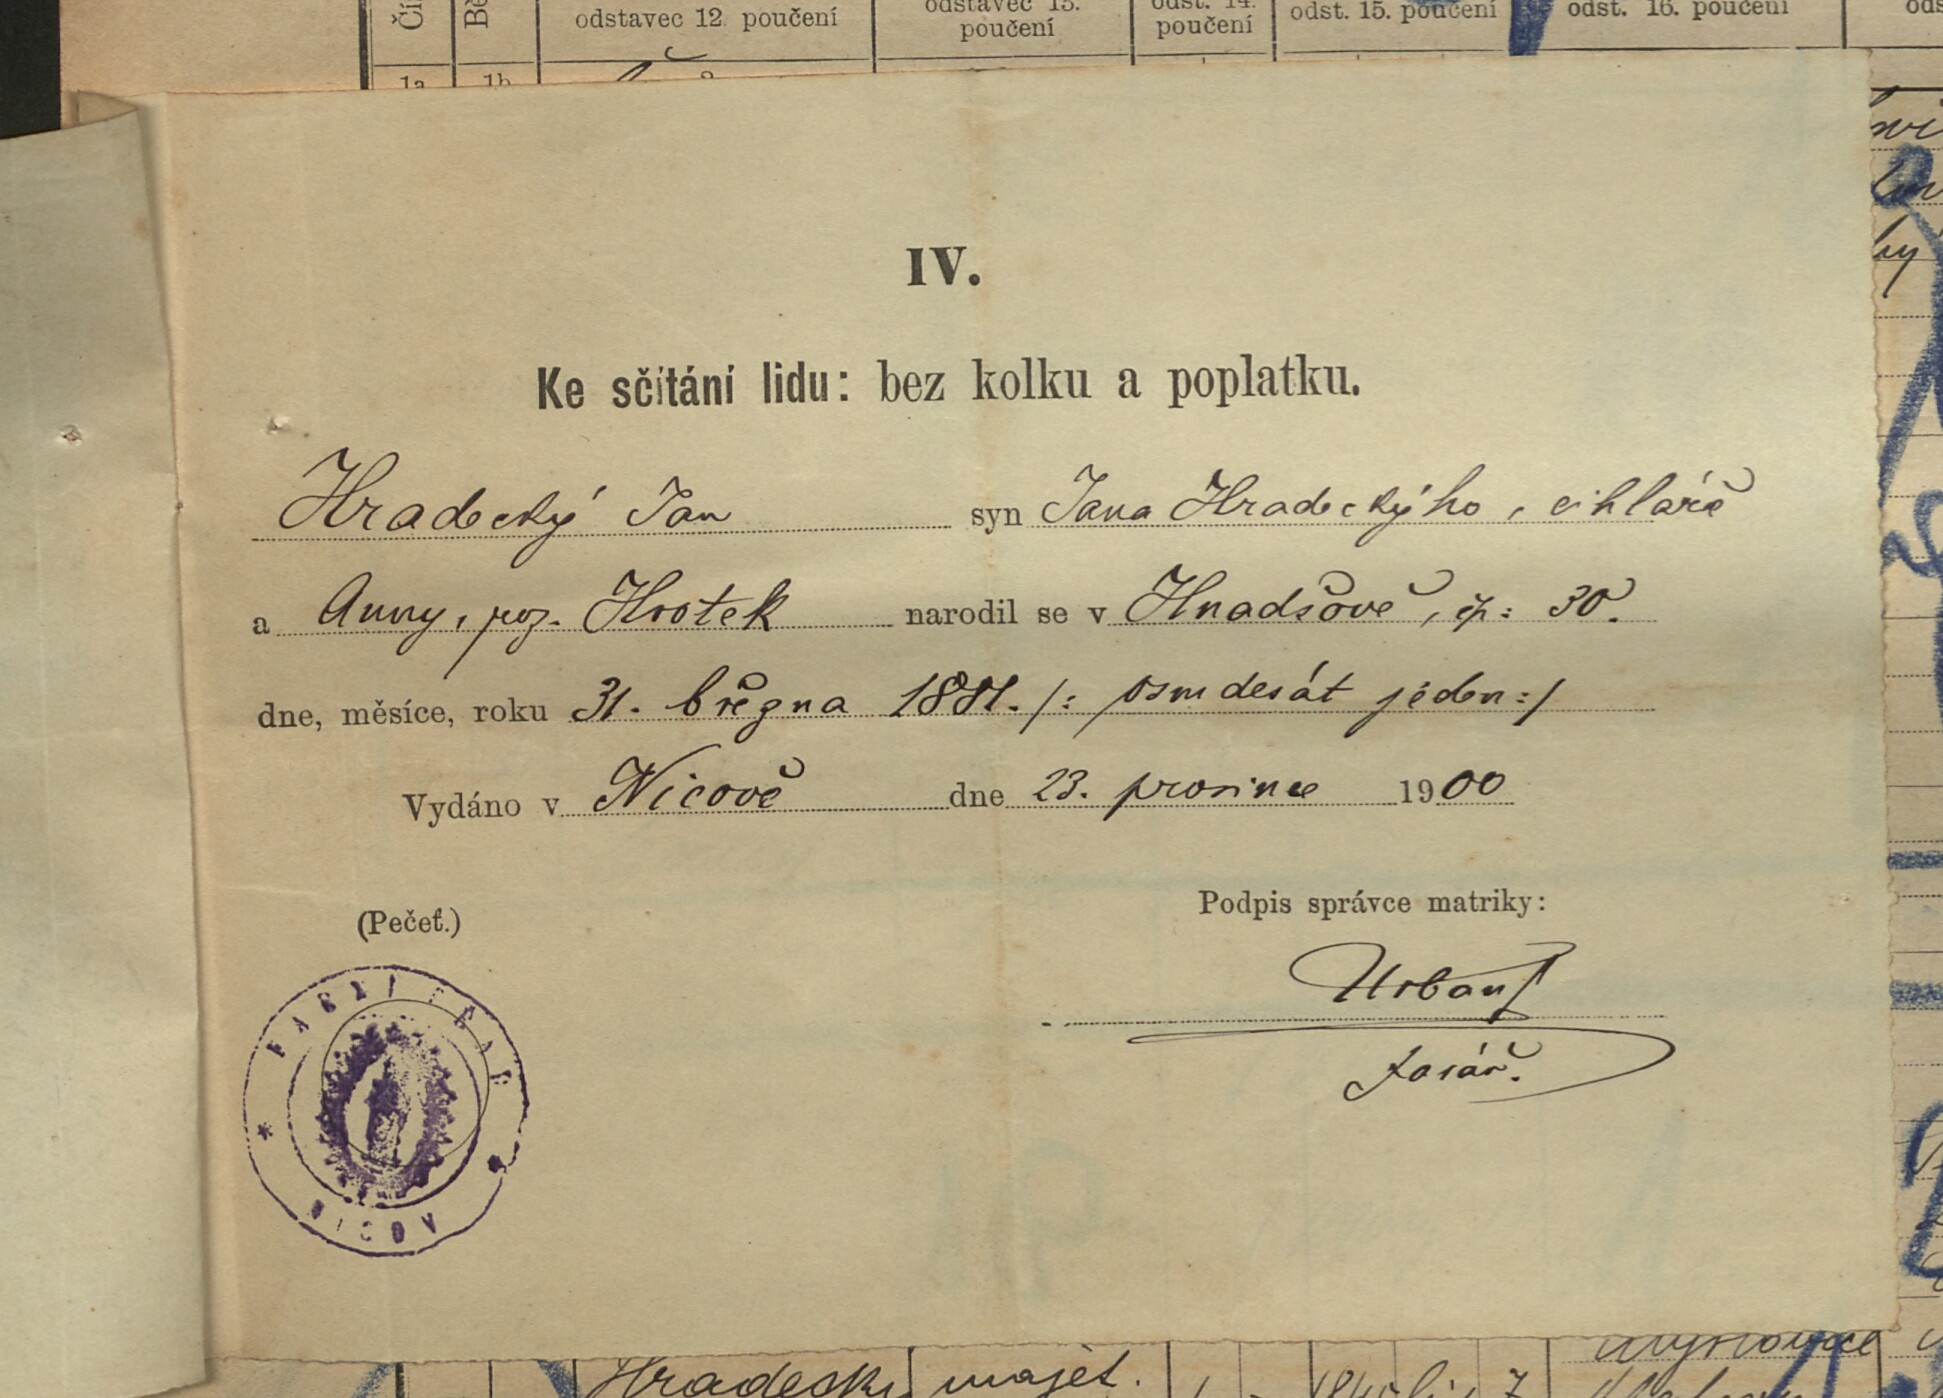 odstavec 12. poučení
odstavec 13. poučení
odst. 14. poučení
odst. 15. poučení
odst. 16. poučení
1a 1b 2
IV.
Ke sčítání lidu: bez kolku a poplatku.
Hradecký Jan syn Jana Hradeckýho, cihláře
a Anny, roz. Hrotek narodil se v Hnadšově, čp: 30.
dne, měsíce, roku 31. března 1881. /: osmdesát jeden :/
Vydáno v Nicově dne 23. prosince 1900
(Pečeť.)
Podpis správce matriky:
Urban
farář.
FARNÍ ÚŘAD
NICOV
Hradecký majet.